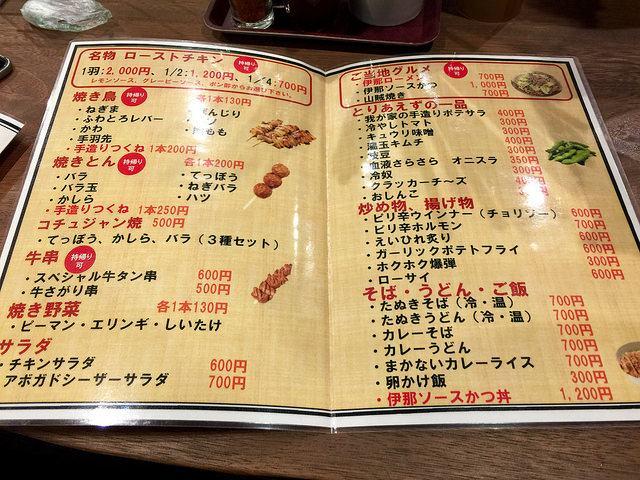 名物 ローストチキン 持帰り可
1羽:2,000円、1/2:1,200円、1/4:700円
レモンソース、グレービーソース、ポン酢からお選び下さい。
焼き鳥 持帰り可 各1本130円
・ねぎま
んじり
・ふわとろレバー
・かわ
もも
・手羽先
・手造りつくね 1本200円
焼きとん 持帰り可 各1本200円
・バラ ・てっぽう
・バラ玉 ・ねぎバラ
・かしら ・ハツ
・手造りつくね 1本250円
コチュジャン焼 500円
・てっぽう、かしら、バラ(3種セット)
牛串 持帰り可
・スペシャル牛タン串 600円
・牛さがり串 500円
焼き野菜 各1本130円
・ピーマン・エリンギ・しいたけ
サラダ
・チキンサラダ 600円
・アボガドシーザーサラダ 700円
ご当地グルメ 持帰り可
・伊那ローメン 700円
・伊那ソースかつ 1,000円
・山賊焼き 700円
とりあえずの一品
・我が家の手造りポテサラ 400円
・冷やしトマト 300円
・キュウリ味噌 300円
・温玉キムチ 400円
・枝豆 300円
・血液さらさら オニスラ 350円
・冷奴 300円
・クラッカーチ〜ズ 400円
・おしんこ 300円
炒め物、揚げ物
・ピリ辛ウインナー(チョリソー) 600円
・ピリ辛ホルモン 700円
・えいひれ炙り 600円
・ガーリックポテトフライ 600円
・ホクホク爆弾 300円
・ローサイ 600円
そば・うどん・ご飯
・たぬきそば(冷・温) 700円
・たぬきうどん(冷・温) 700円
・カレーそば 700円
・カレーうどん 700円
・まかないカレーライス 700円
・卵かけ飯 300円
・伊那ソースかつ丼 1,200円